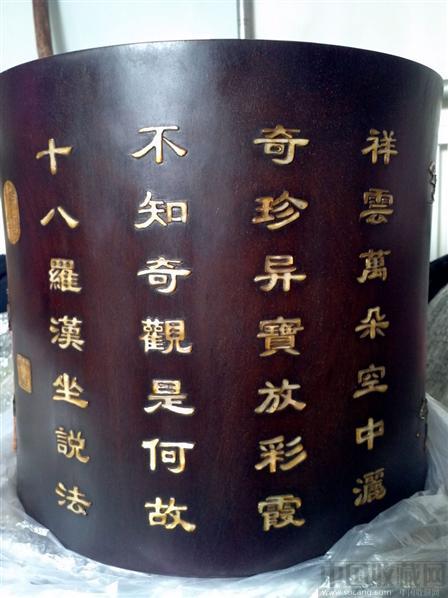 祥雲萬朵空中灑
奇珍异寶放彩霞
不知奇觀是何故
十八羅漢坐説法
中国收藏网
www.socang.com 中国收藏网